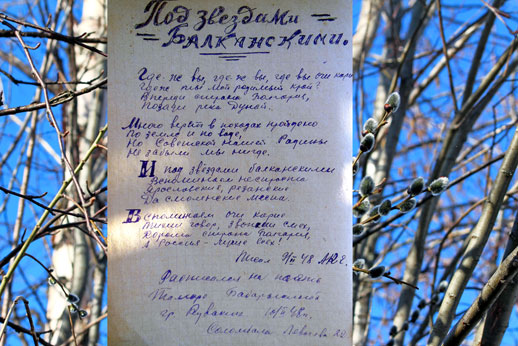 Под звездами
Балканскими.
Где же вы, где же вы, где вы очи карие
Где же ты мой родимый край?
Впереди страна Болгария,
Позади река Дунай.
Много вёрст в походах пройдено
По земле и по воде,
Но Советской нашей Родины
Не забыли мы нигде.
И под звездами балканскими
Вспоминаем неспроста
Ярославские, рязанские
Да смоленские места.
Вспоминаем очи карие
Тихий говор, звонкий смех,
Хороша страна Болгария,
А Россия - лучше всех!
Писал 9/II 48
на память
Тамаре
гр.